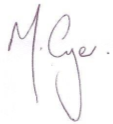 M. Cyer.